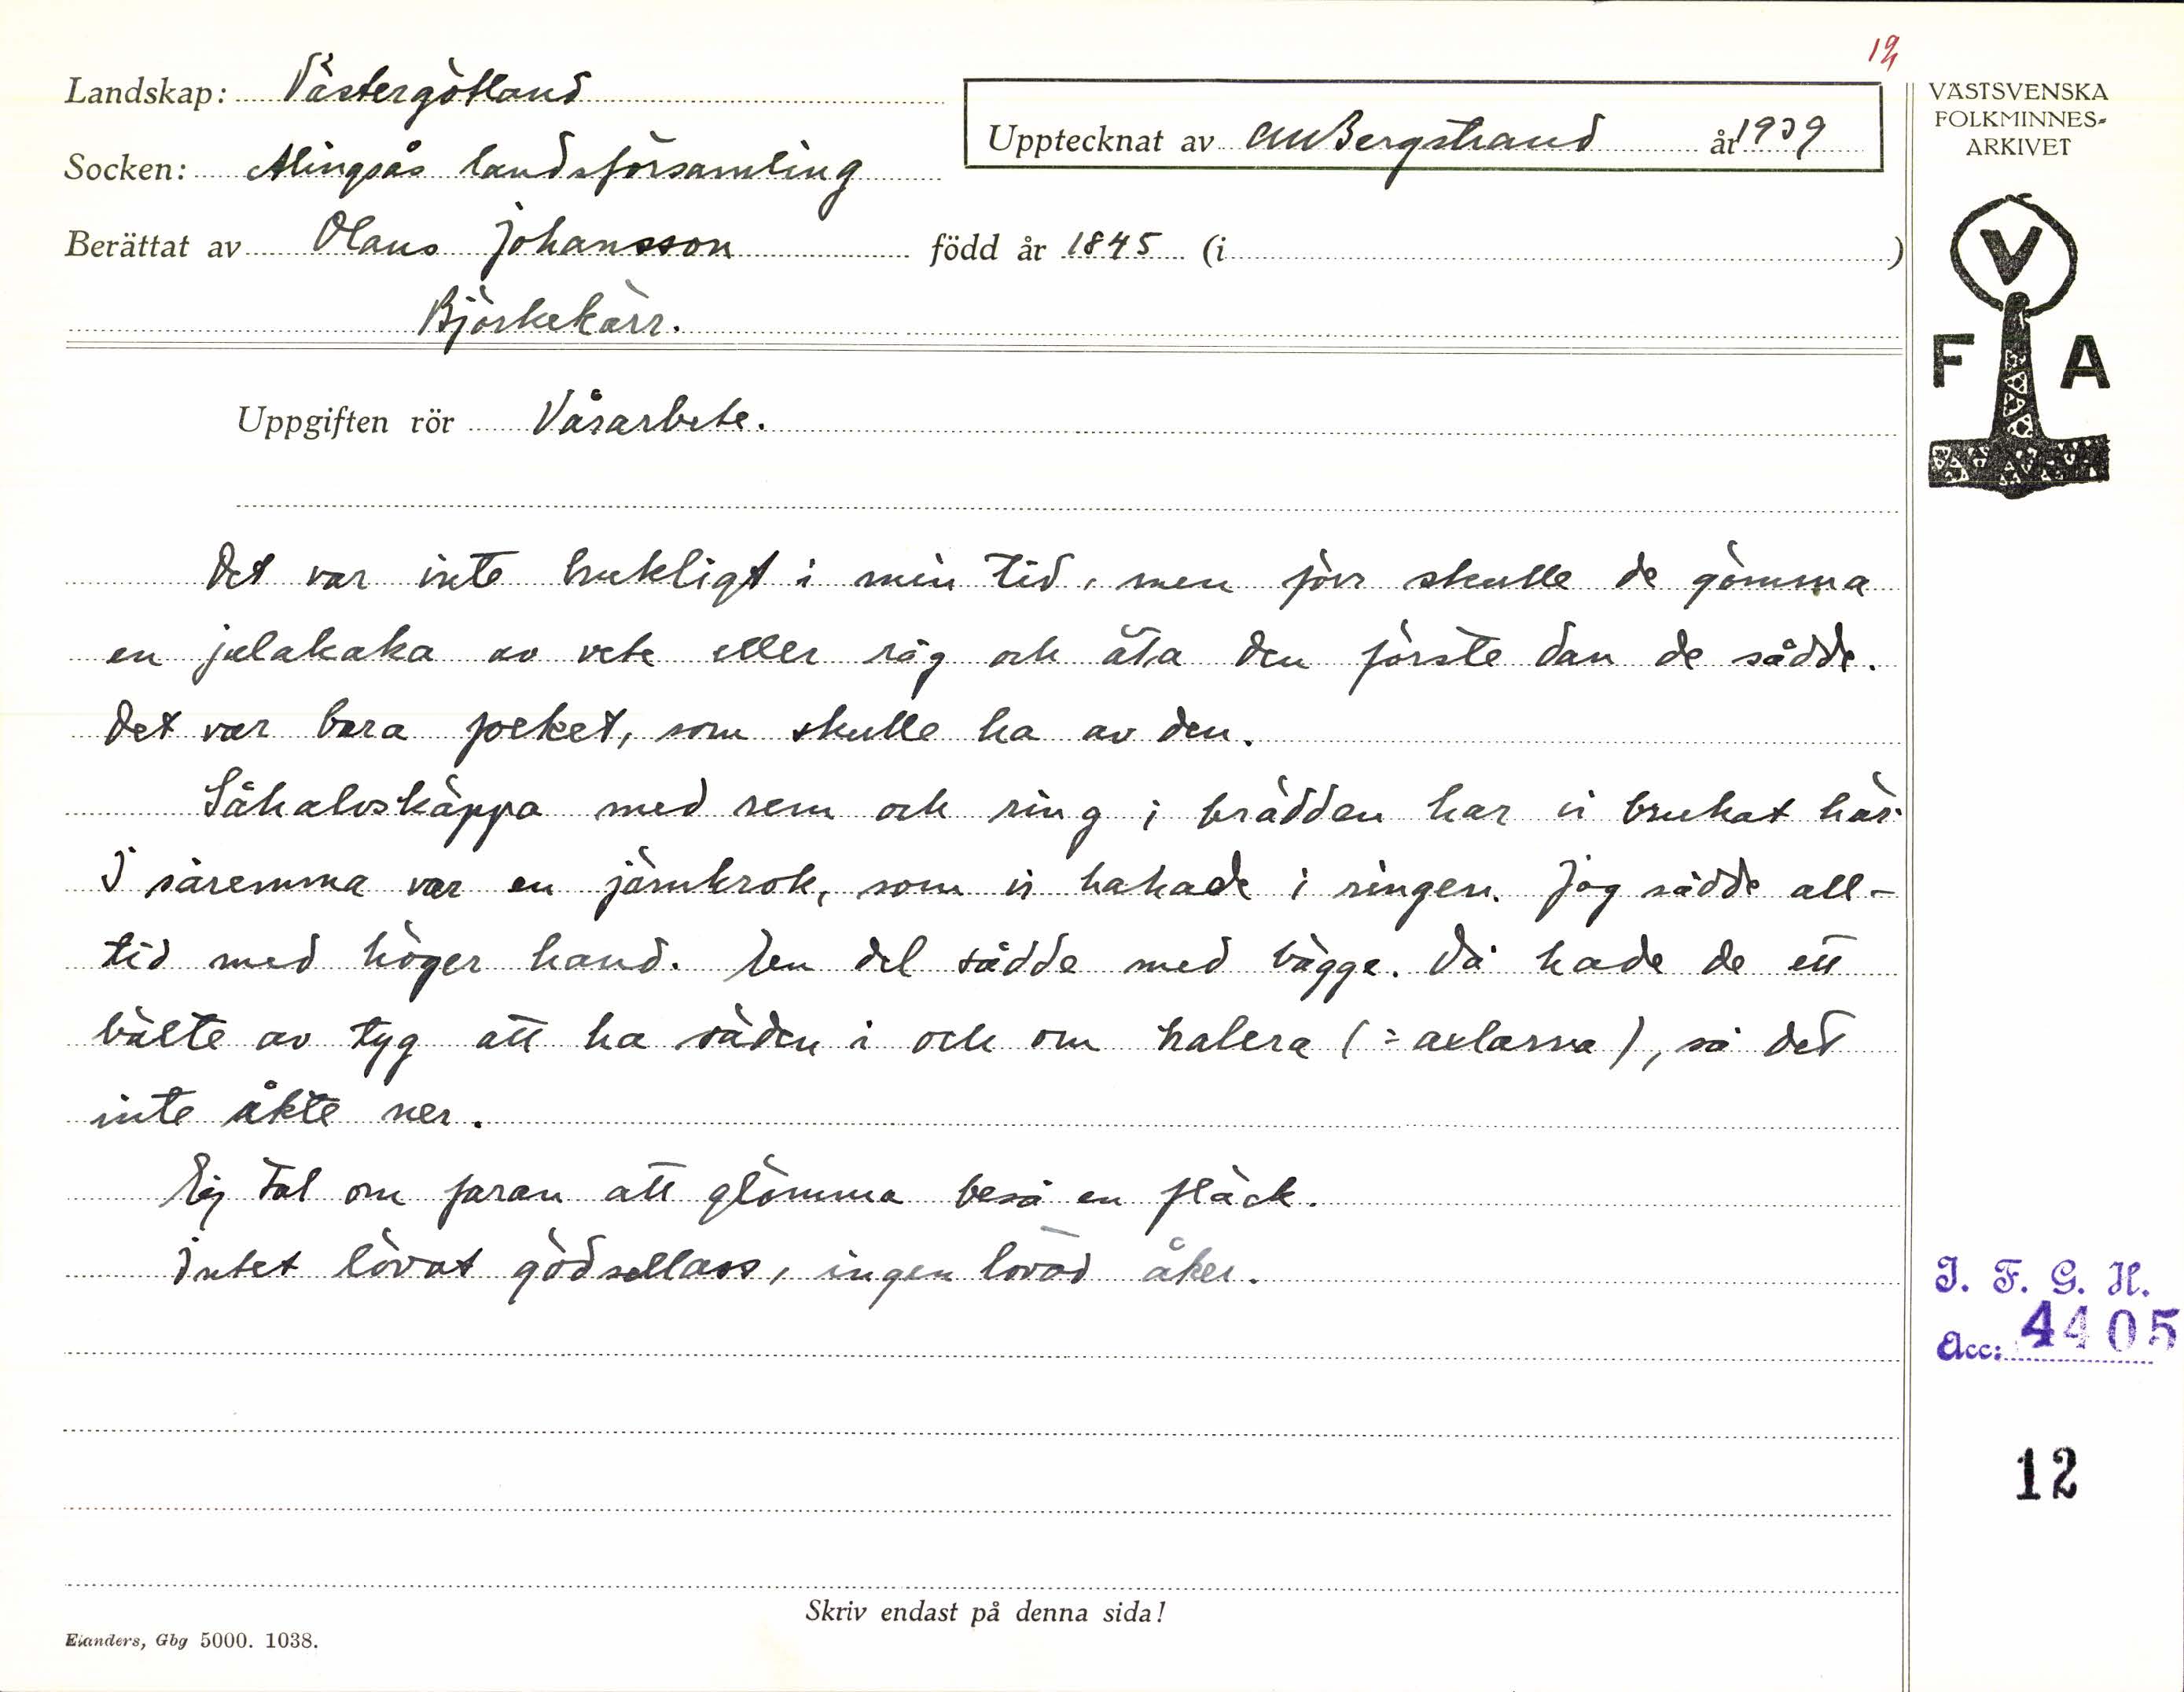 12
Landskap: Västergötland
Upptecknat av CM Bergstrand år 1939
VÄSTSVENSKA
FOLKMINNES-
ARKIVET
Socken: Alingsås landsförsamling
Berättat av Olaus Johansson född år 1845 (i )
Björkekärr.
V
F A
Uppgiften rör Vårarbete.
Det var inte brukligt i min tid, men förr skulle de gömma
en julakaka av vete eller råg och äta den förste dan de sådde.
Det var bara folket, som skulle ha av den.
Såhalvskäppa med rem och ring i brädden har vi brukat här.
I såremma var en järnkrok, som vi hakade i ringen. Jag sådde all-
tid med höger hand. En del sådde med bägge. Då hade de ett
bälte av tyg att ha säden i och om halera (= axlarna), så det
inte åkte ner.
Ej tal om faran att glömma beså en fläck.
Intet lövat gödsellass, ingen lövad åker.
I. F. G. H.
Acc: 4405
12
Skriv endast på denna sida!
Elanders, Gbg 5000. 1038.